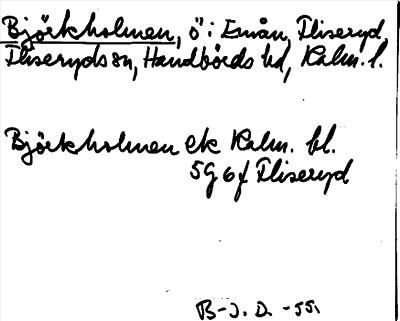 Björkholmen, ö i Emån, Fliseryd,
Fliseryds sn, Handbörds hd, Kalm. l.
Björkholmen ek Kalm. bl.
5G6f Fliseryd
B-J. D. -55.